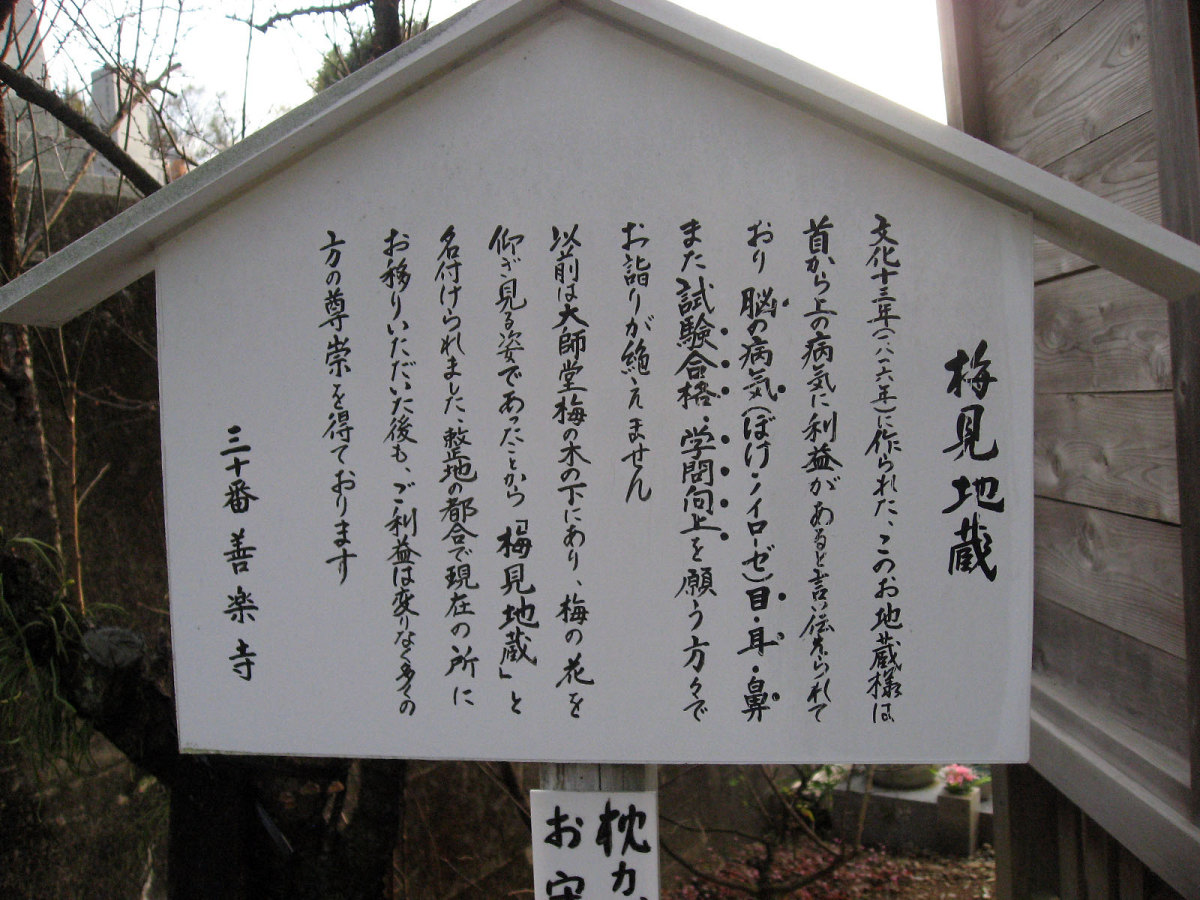 梅見地蔵
文化十三年(一八一六年)に作られた、このお地蔵様は
首から上の病気に利益があると言い伝えられて
おり 脳の病気(ぼけ・ノイローゼ)目・耳・鼻
また試験合格・学問向上を願う方々で
お詣りが絶えません
以前は大師堂梅の木の下にあり、梅の花を
仰ぎ見る姿であったことから「梅見地蔵」と
名付けられました、整地の都合で現在の所に
お移りいただいた後も、ご利益は変りなく多くの
方の尊崇を得ております
三十番善楽寺
枕カ
お守